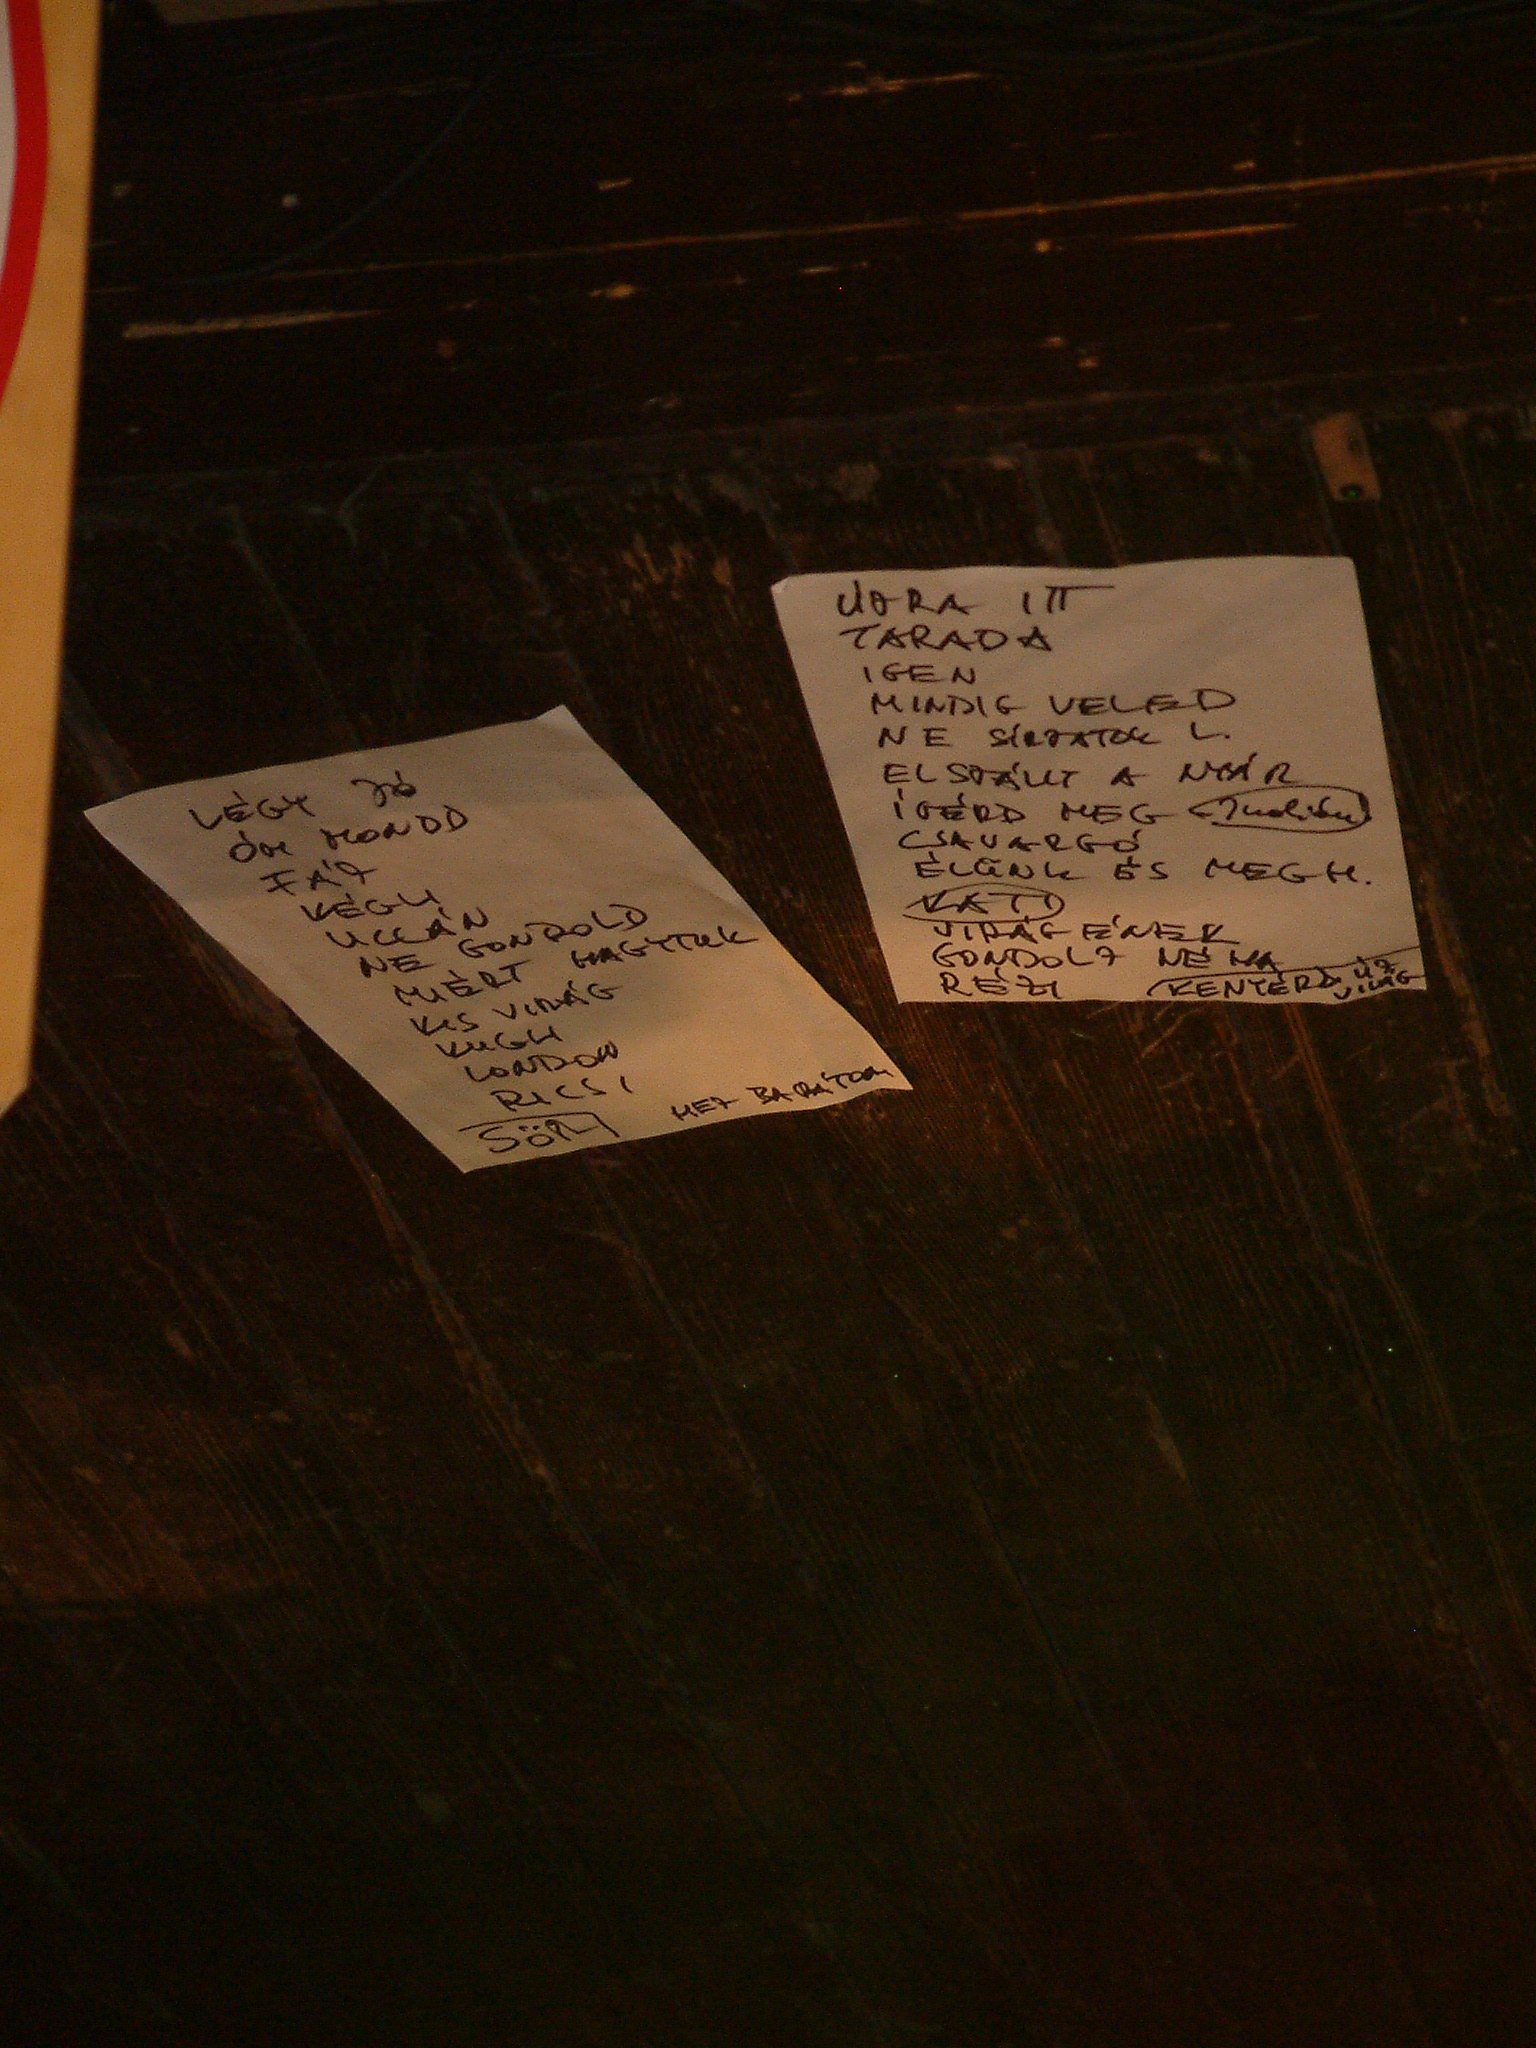 LÉGY JÓ
ÓH MONDD
FÁJ
VÉGH
UCCÁN
NE GONDOLD
MIÉRT HAGYTUK
KIS VIRÁG
VUGH
LONDON
RICSI
SÖR
HEJ BARÁTOM
ÚJRA ITT
TARADA
IGEN
MINDIG VELED
NE SÍRJATOK L.
ELSZÁLLT A NYÁR
ÍGÉRD MEG Indián
CSAVARGÓ
ÉLÜNK ÉS MEGH.
KATI
VIRÁGÉNEK
GONDOLJ NÉHA
RÉZI KENYÉRD. ÚJ
VILÁG